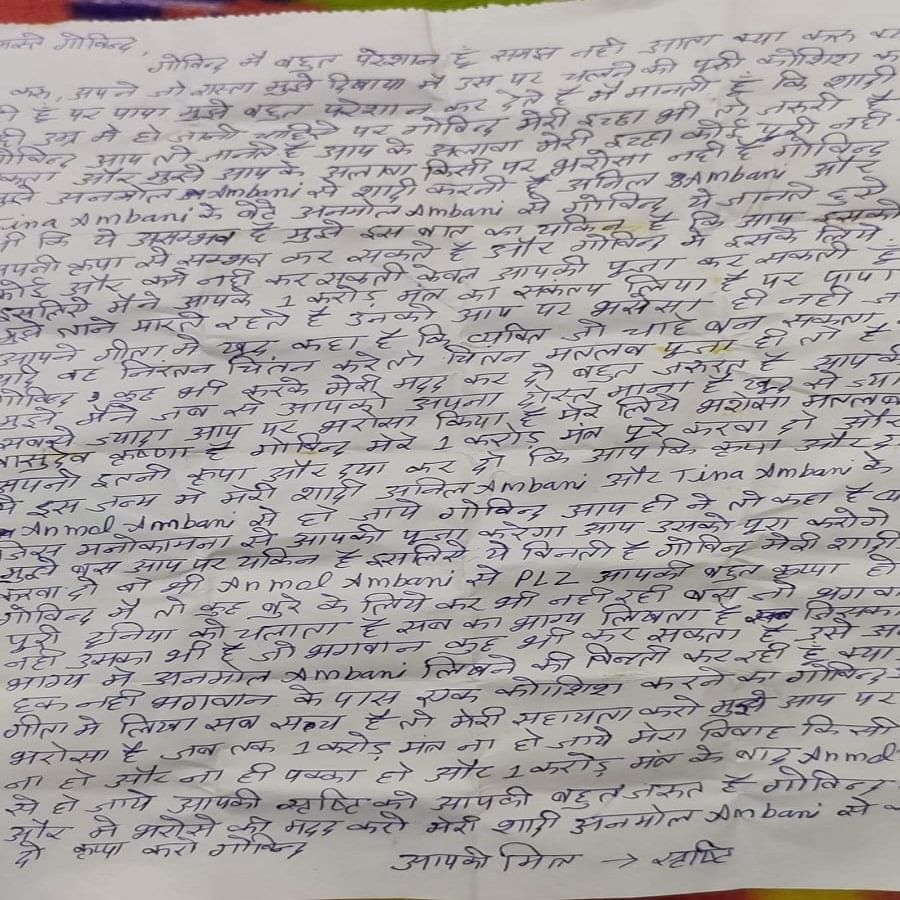 नमस्ते गोविन्द,
गोविन्द मै बहुत परेशान हूँ समझ नही आता क्या करू
करू, आपने जो रास्ता मुझे दिखाया मै उस पर चलने की पूरी कोशिश
हूँ पर पापा मुझे बहुत परेशान कर देते है मै मानती हूँ कि शादी
उम्र मे हो जानी चाहिये पर गोविन्द मेरी इच्छा भी तो जरूरी है
गोविन्द आप तो जानते है आप के अलावा मेरी इच्छा कोई पूरी नही
और मुझे आपके अलावा किसी पर भरोसा नही है गोविन्द
मुझे अनमोल Ambani से शादी करनी है अनिल Ambani और
Tina Ambani के बेटे अनमोल Ambani से गोविन्द ये जानते हुये
कि ये असम्भव है मुझे इस बात का यकिन है कि आप इसको
अपनी कृपा से सम्भव कर सकते है और गोविन्द मै इसके लिये
कोई और कर्म नही कर सकती केवल आपकी पूजा कर सकती हूँ
इसलिये मैने आपके 1 करोड़ मंत्र का संकल्प लिया है पर पापा
मुझे ताने मारते रहते है उनको आप पर भरोसा ही नही
आपने गीता मे खुद कहा है कि व्यक्ति जो चाहे बन सकता
यदि वह निरंतन चिंतन करे तो चिंतन मतलब पूजा ही तो है
गोविन्द, कुछ भी करके मेरी मदद कर दो बहुत जरूरत है आपकी
मुझे, मैने जब से आपको अपना दोस्त माना है खुद से
सबसे ज्यादा आप पर भरोसा किया है मेरे लिये भरोसा मतलब
वासुदेव कृष्णा है गोविन्द मेरे 1 करोड़ मंत्र पूरे करवा दो और
अपनी इतनी कृपा और दया कर दो कि आप कि कृपा और
से इस जन्म मे मेरी शादी अनिल Ambani और Tina Ambani के
Anmol Ambani से हो जाये गोविन्द आप ही ने तो कहा है
जिस मनोकामना से आपकी पूजा करेगा आप उसको पूरा करोगे
मुझे बस आप पर यकिन है इसलिये ये विनती है गोविन्द मेरी शादी
करवा दो वो भी Anmol Ambani से PLZ आपकी बहुत कृपा
गोविन्द मै तो कुछ बुरे के लिये कर भी नही रही बस जो
पूरी दुनिया को चलाता है सब का भाग्य लिखता है जिसका
नही उसका भी है जो भगवान कुछ भी कर सकता है उसे
भाग्य मे अनमोल Ambani लिखने की विनती कर रही हूँ क्या
हक नही भगवान के पास एक कोशिश करने का गोविन्द
गीता मे लिखा सब सत्य है तो मेरी सहायता करो मुझे आप पर
भरोसा है जब तक 1 करोड़ मंत्र ना हो जाये मेरा विवाह किसी
ना हो और ना ही पक्का हो और 1 करोड़ मंत्र के बाद Anmol
से हो जाये आपकी सृष्टि को आपकी बहुत जरूत है गोविन्द
और मे भरोसे की मदद करो मेरी शादी अनमोल Ambani से
दो कृपा करो गोविन्द
आपकी मित्र → सृष्टि